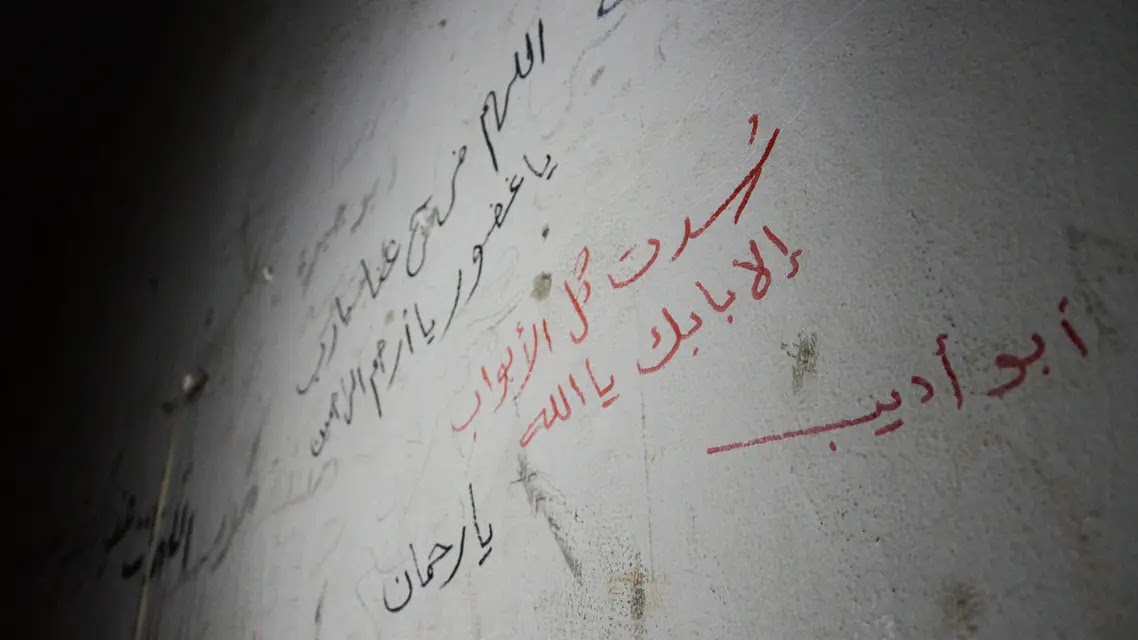 اللهم فرج عنا يا رب
يا غفور يا أرحم الراحمين
سُدت كل الأبواب
إلا بابك يا الله
أبو أديب
يا رحمان